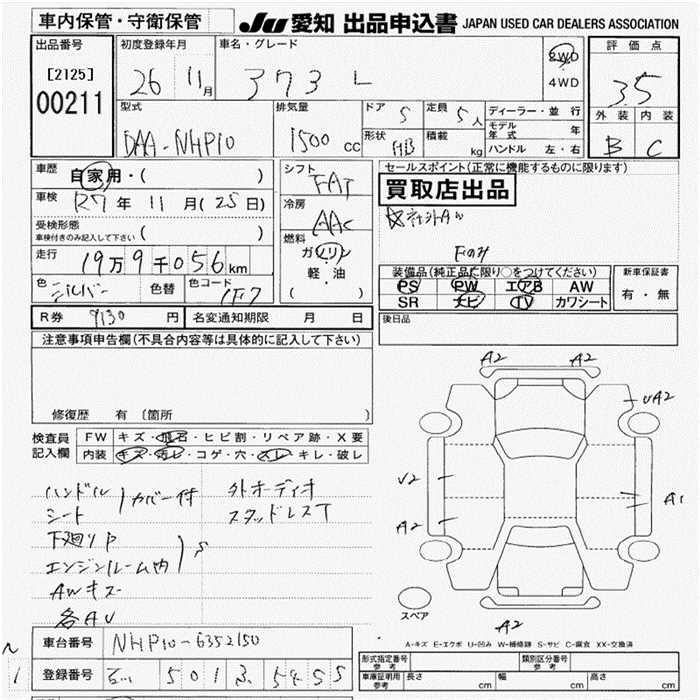 車内保管・守衛保管
JU 愛知 出品申込書 JAPAN USED CAR DEALERS ASSOCIATION
出品番号
[2125]
00211
初度登録年月
26 11月
車名・グレード
アクア L
2WD
4WD
評価点
3.5
外装 内装
B C
型式
DAA-NHP10
排気量
1500 cc
ドア 5
形状 HB
定員 5人
積載 kg
ディーラー・並行
モデル年式 年
ハンドル 左・右
車歴 自家用・( )
車検 R7年11月(25日)
受検形態
車検付きのみ記入して下さい ( )
走行 19万9千056km
色 シルバー 色替 色コード 1F7
R券 9130円 名変通知期限 月 日
シフト
FAT
冷房
AAC
燃料
ガソリン
軽・油
( )
セールスポイント(正常に機能するものに限ります)
買取店出品
社外AW
Fのみ
装備品(純正品に限り○をつけてください)
PS PW エアB AW
SR ナビ TV カワシート
新車保証書
有・無
後日品
注意事項申告欄(不具合内容等は具体的に記入して下さい)
修復歴 有〔箇所 〕
検査員記入欄
FW キズ・飛石・ヒビ割・リペア跡・X要
内装 キズ・汚レ・コゲ・穴・スレ・キレ・破レ
ハンドル
シート
カバー付
外オーディオ
スタッドレスT
下廻りP
エンジンルーム内
S
AWキズ
各AU
A2 A2
UA2
U2
A2
A1
A2
スペア
A-キズ E-エクボ U-凹み W-補修跡 S-サビ C-腐食 XX-交換済
車台番号 NHP10-6352150
登録番号 501
形式指定番号 参考
類別区分番号 参考
車庫証明用 参考 長さ cm 幅 cm 高さ cm